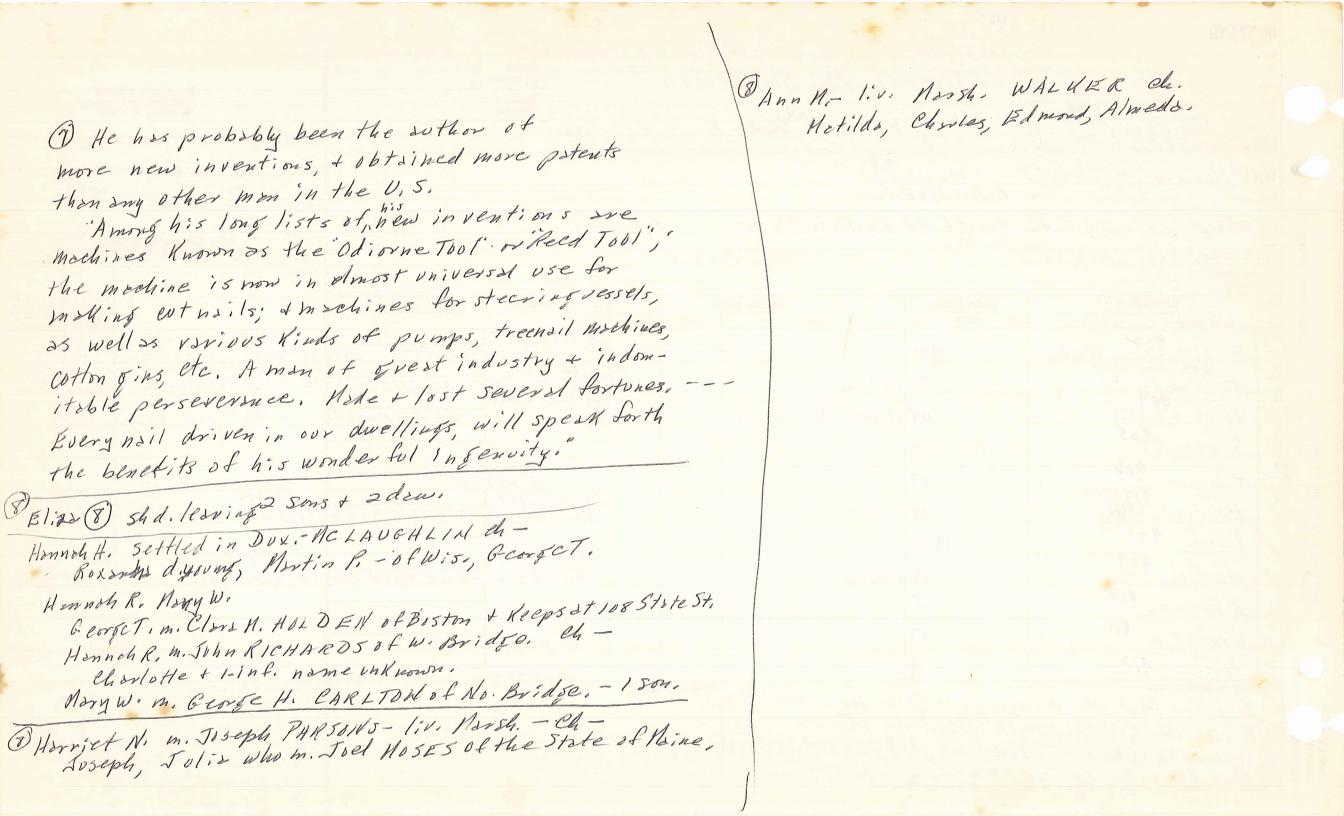 ⑦ He has probably been the author of
more new inventions, + obtained more patents
than any other man in the U.S.
"Among his long lists of his new inventions are
machines known as the "Odiorne Tool" or "Reed Tool";
the machine is now in almost universal use for
making cut nails; + machines for steering vessels,
as well as various kinds of pumps, treenail machines,
cotton gins, etc. A man of great industry + indom-
itable perseverance. Made + lost several fortunes. ---
Every nail driven in our dwellings, will speak forth
the benefits of his wonderful ingenuity."
⑧ Eliza ⑧ sh d. leaving 2 sons + 2 dau.
Hannah H. settled in Dux. - MCLAUGHLIN ch -
d. young, Martin P. - of Wis., George T.
Hannah R. Mary W.
George T. m. Clara M. HOLDEN of Boston + keeps at 108 State St.
Hannah R. m. John RICHARDS of W. Bridge. ch -
Charlotte + 1-inf. name unknown.
Mary W. m. George H. CARLTON of No. Bridge. - 1 son.
Harriet N. m. Joseph PARSONS - liv. Marsh. - ch -
Joseph, Julia who m. Joel MOSES of the State of Maine,
⑧ Ann M. - liv. Marsh. WALKER ch.
Matilda, Charles, Edmond, Almeda.